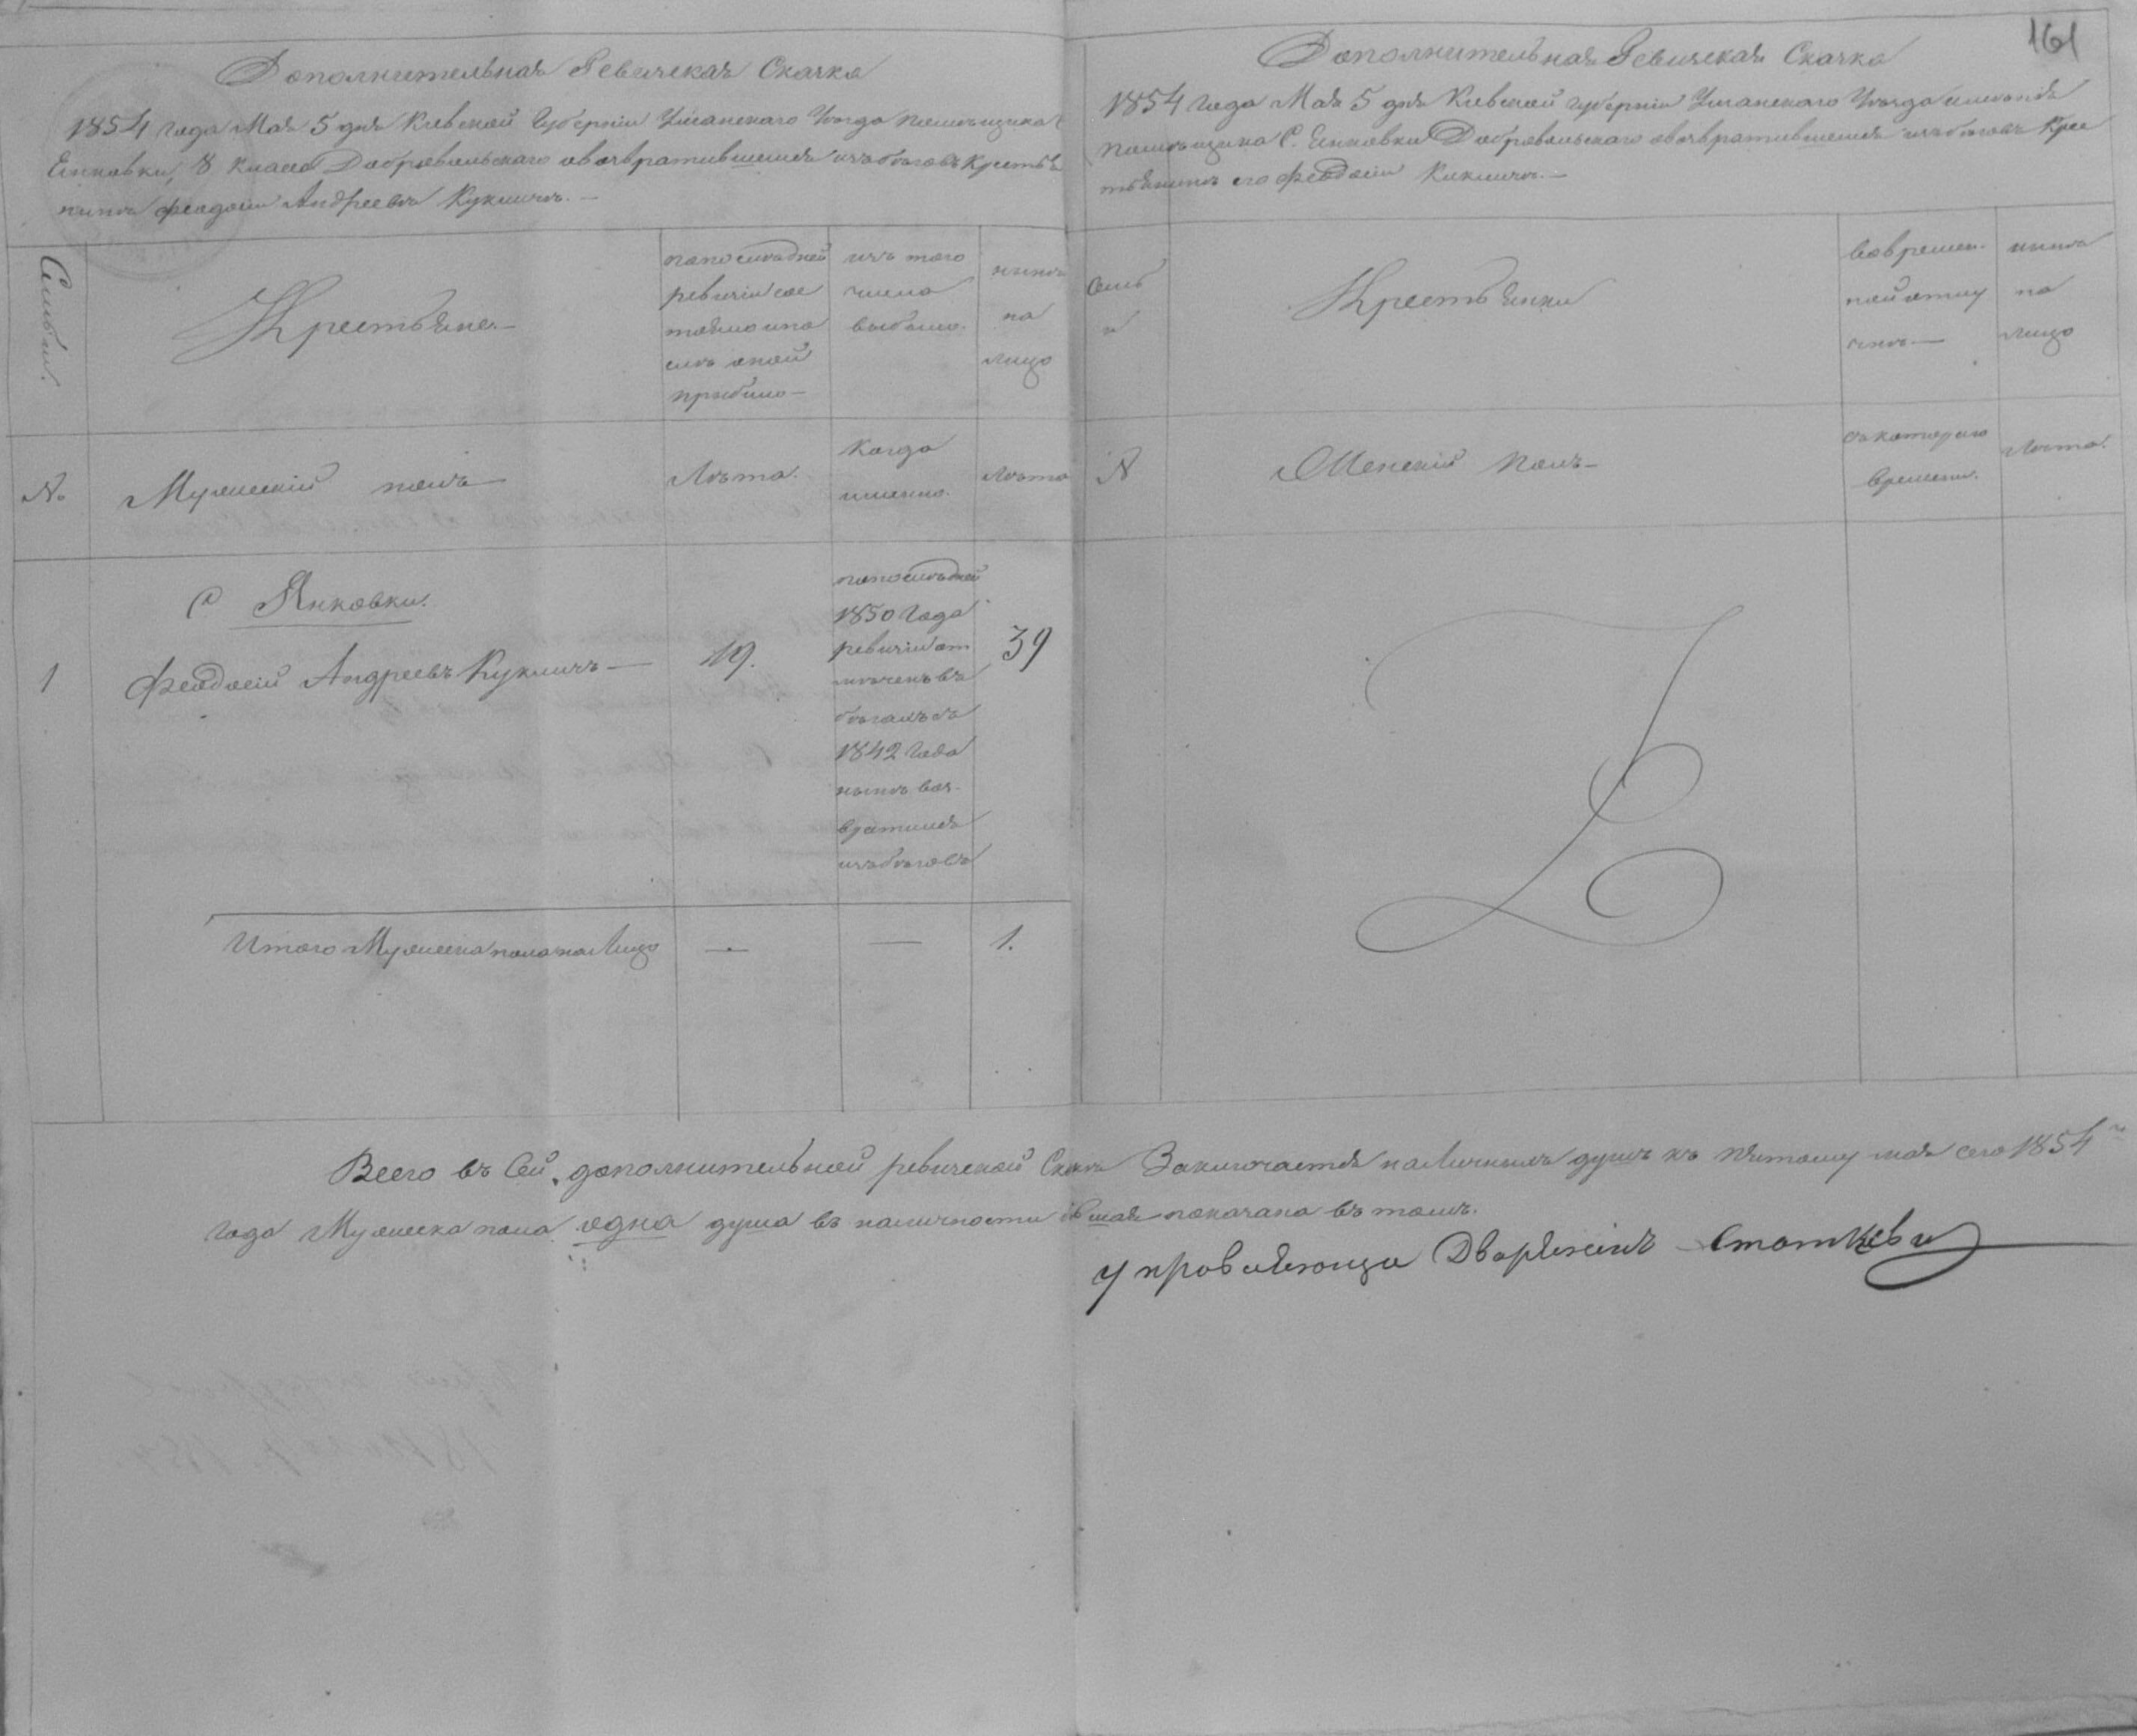 161
Дополнительная Ревизская Сказка
1854 года Мая 5 дня Киевской Губерніи Уманскаго Уезда помѣщика С.
Енковки, 8 класса Добровольскаго о возвратившемся изъ бѣговъ крестья
нинѣ Феодосіи Андреевѣ Кукличѣ. —
Семьи.
Крестьяне. —
по последней
ревизіи сос
тояло и по
слѣ оной
прибыло —
изъ того
числа
выбыло.
нынѣ
на
лицо
№
Мужескій полъ —
Лѣта.
Когда
именно.
Лѣта
С Янковки.
1
Феодосій Андреевъ Кукличъ —
19.
по последней
1850 года
ревизіи от
мѣченъ въ
бѣгахъ съ
1842 года
нынѣ воз-
вратился
изъ бѣговъ
39
Итого Мужеска пола на Лицо
—
—
1.
Дополнительная Ревизская Сказка
1854 года Мая 5 дня Киевской губерніи Уманскаго Уезда имѣнія
помѣщика С. Енковки Добровольскаго о возвратившемся изъ бѣговъ крес
тьянинѣ его Феодосіи Кикличѣ. —
Семь
и
Крестьянки
Во времен-
ной отлу
чкѣ —
нынѣ
на
лицо
№
Женскій Полъ —
съ котораго
времени.
Лѣта.
Всего въ Сей дополнительной ревизской Сказкѣ Заключается наличныхъ душъ къ пятому мая сего 1854
года Мужеска пола одна душа въ наличности показана въ томъ.
Управляющи Дворянинъ Статкеви